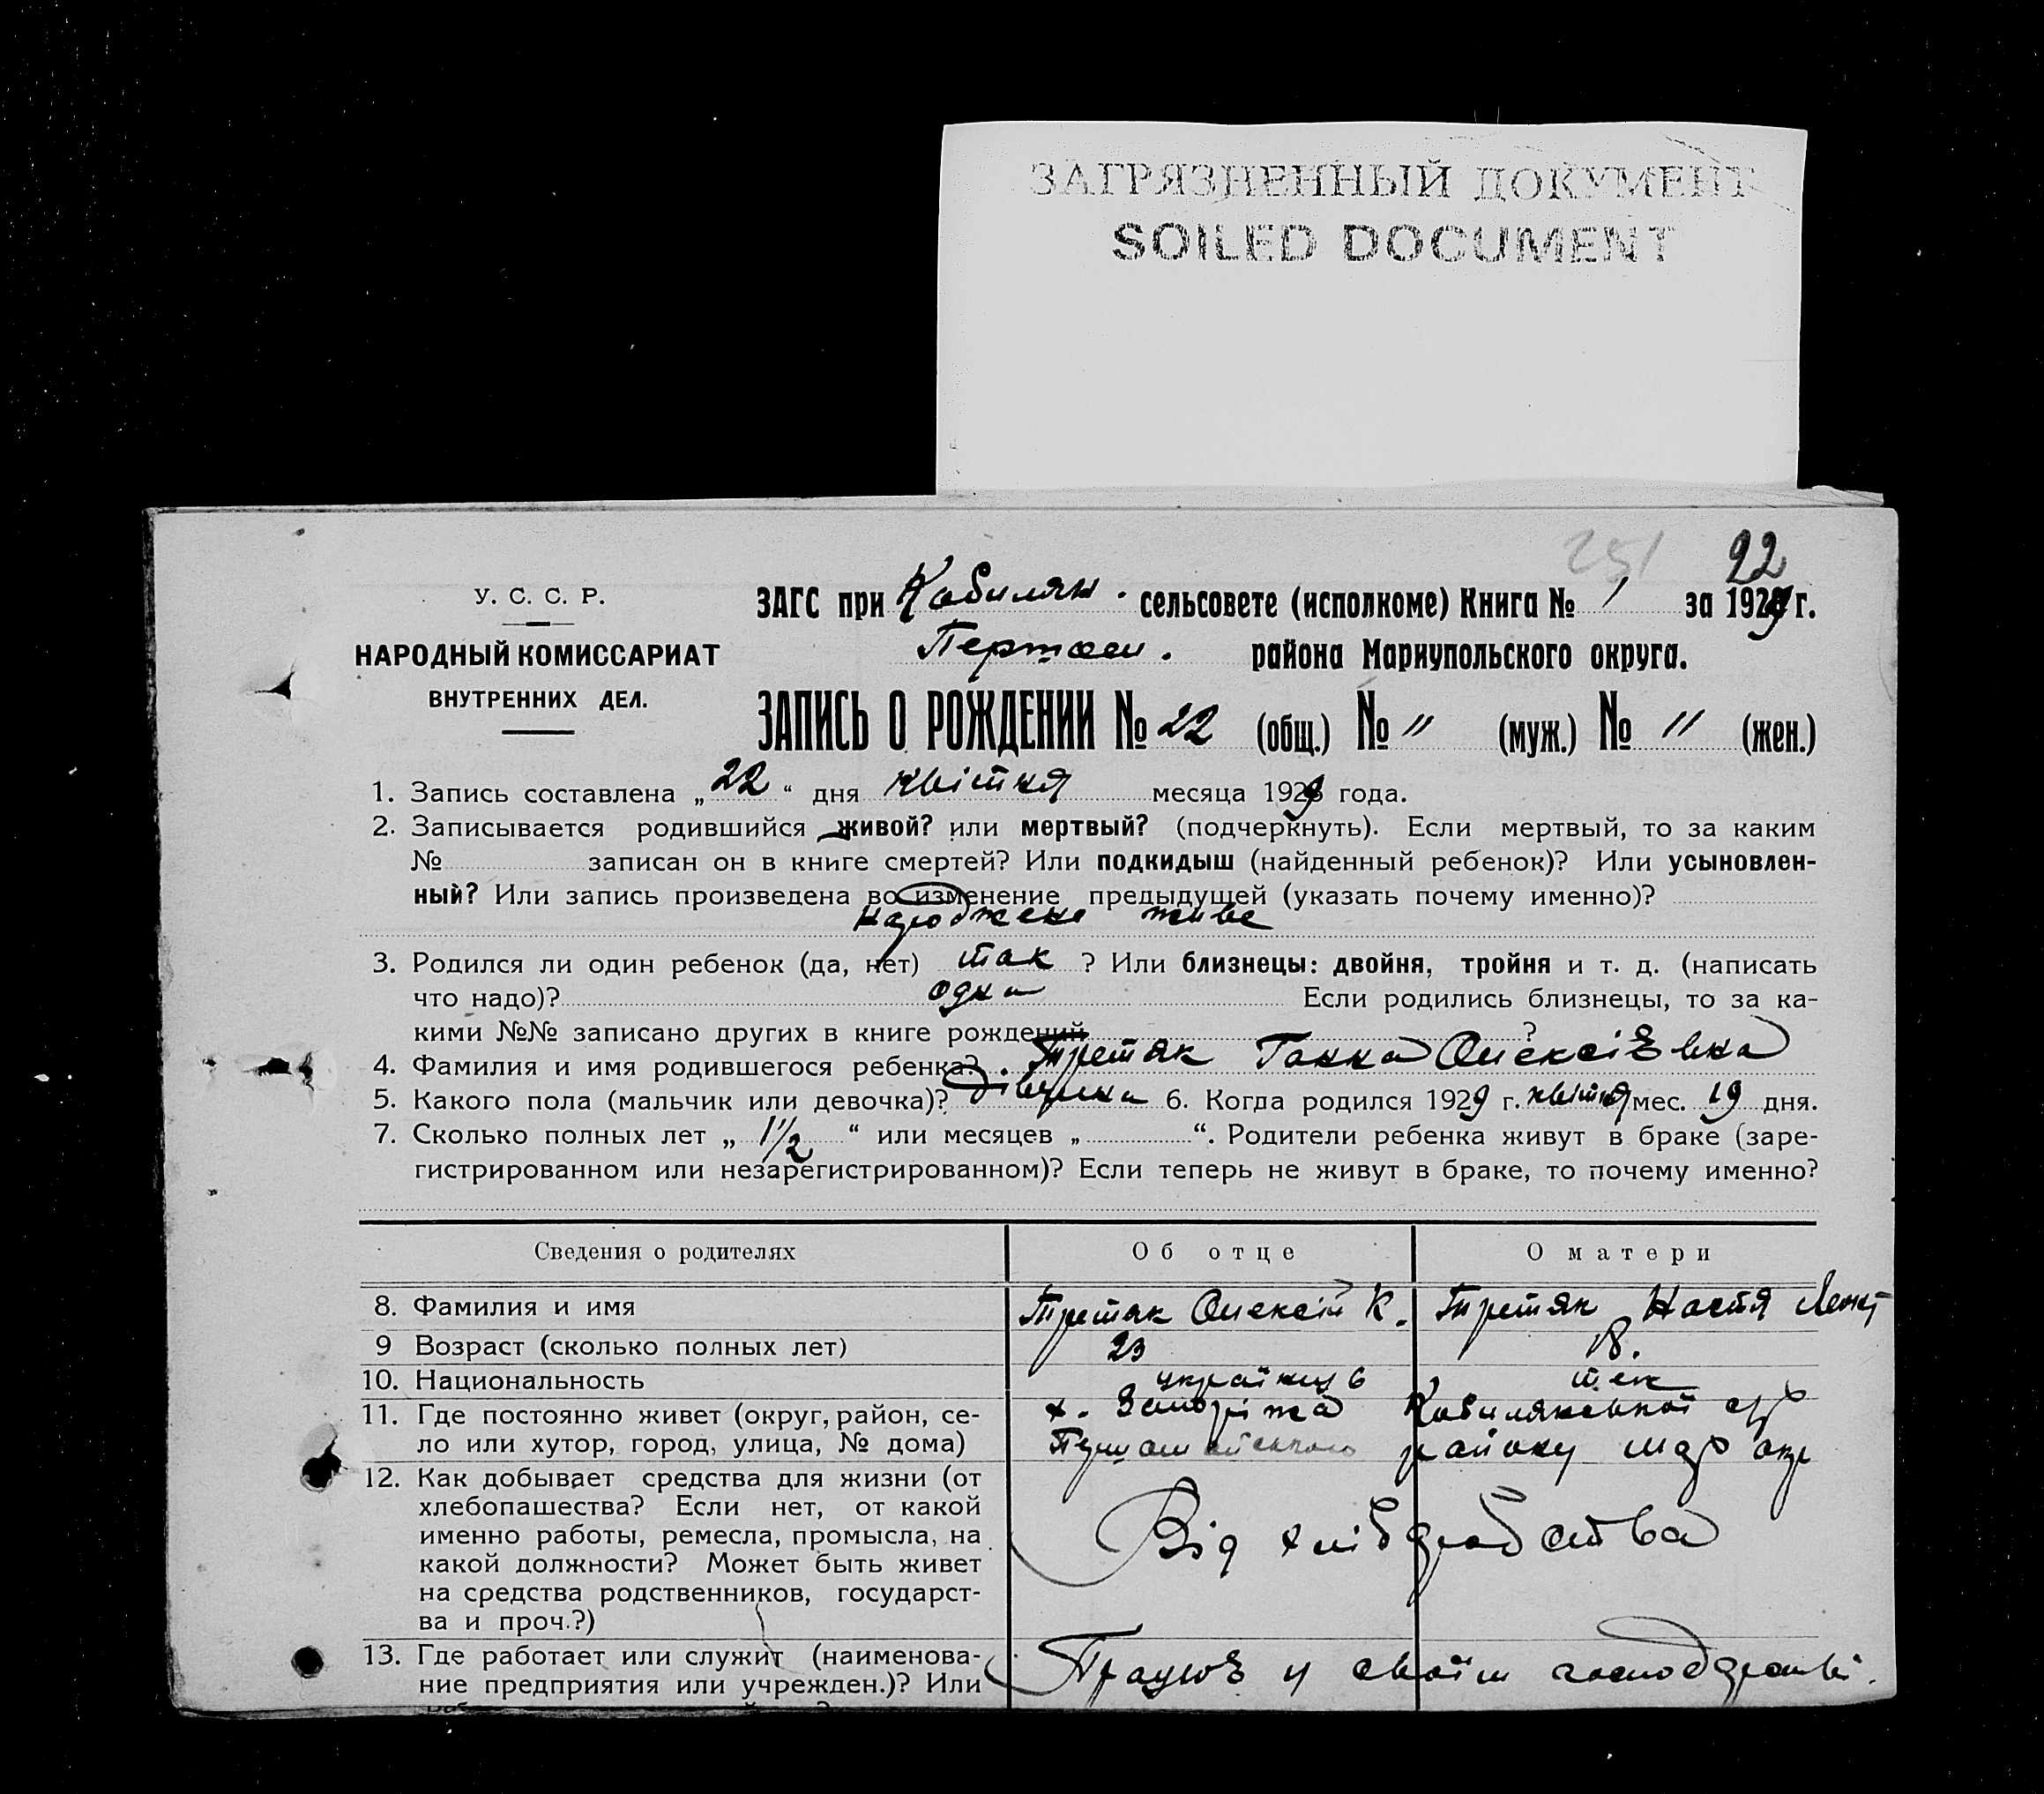 ЗАГРЯЗНЕННЫЙ ДОКУМЕНТ
SOILED DOCUMENT
251 22
У. С. С. Р.
НАРОДНЫЙ КОМИССАРИАТ
ВНУТРЕННИХ ДЕЛ.
ЗАГС при Кобилян. сельсовете (исполкоме) Книга № 1 за 1929 г.
района Мариупольского округа.
ЗАПИСЬ О РОЖДЕНИИ № 22 (общ.) № " (муж.) № " (жен.)
1. Запись составлена „ 22 “ дня квітня месяца 1929 года.
2. Записывается родившийся живой? или мертвый? (подчеркнуть). Если мертвый, то за каким
№ записан он в книге смертей? Или подкидыш (найденный ребенок)? Или усыновлен-
ный? Или запись произведена во изменение предыдущей (указать почему именно)?
народжене живе
3. Родился ли один ребенок (да, нет) так ? Или близнецы: двойня, тройня и т. д. (написать
что надо)? одна Если родились близнецы, то за ка-
кими №№ записано других в книге рождений ?
4. Фамилия и имя родившегося ребенка? Третяк Ганна Олексіѣвна
5. Какого пола (мальчик или девочка)? дівчина 6. Когда родился 1929 г. квітня мес. 19 дня.
7. Сколько полных лет „ 1 1/2 “ или месяцев „ “. Родители ребенка живут в браке (заре-
гистрированном или незарегистрированном)? Если теперь не живут в браке, то почему именно?
Сведения о родителях Об отце О матери
8. Фамилия и имя Третяк Олексій К. Третяк Настя
9 Возраст (сколько полных лет) 23 18.
10. Национальность українц
11. Где постоянно живет (округ, район, се- х. Запоріжа Кобиляцької с/р
ло или хутор, город, улица, № дома) Першомайського району мар окр
12. Как добывает средства для жизни (от
хлебопашества? Если нет, от какой
именно работы, ремесла, промысла, на
какой должности? Может быть живет
на средства родственников, государст-
ва и проч.?)
Від хлібороб ства
13. Где работает или служит (наименова-
ние предприятия или учрежден.)? Или
Працюѣ у своїм господарстві.